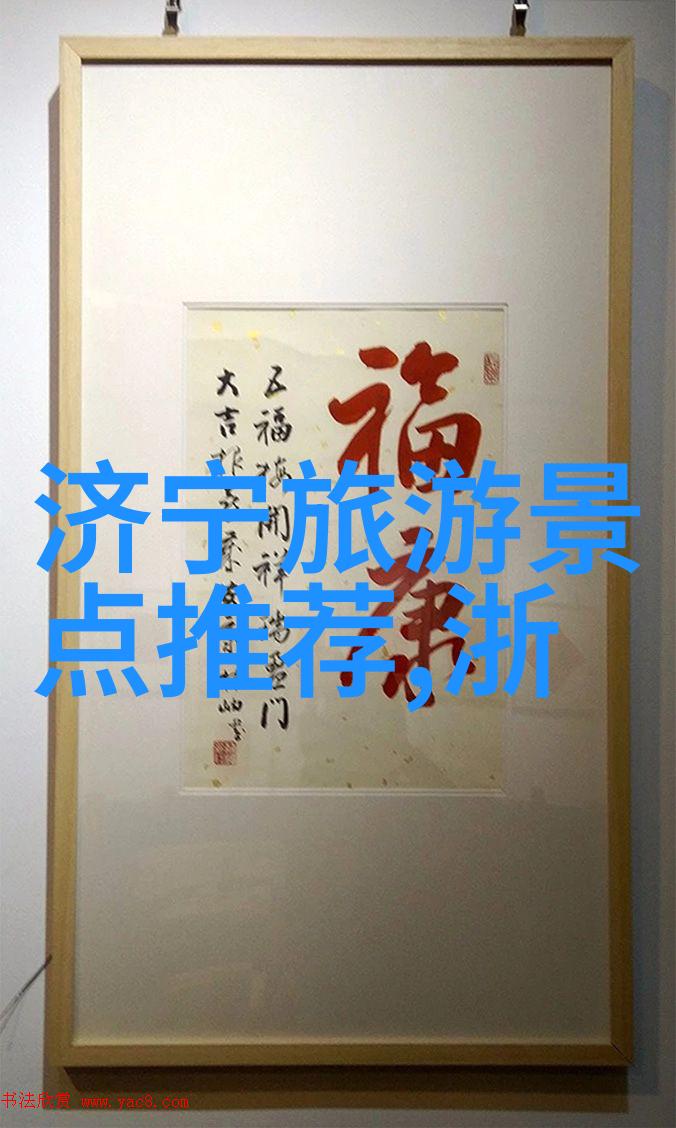 济宁旅游景
点推荐,浙
福康
五福梅开祥瑞盈门
大吉
书法欣赏 www.yac8.com